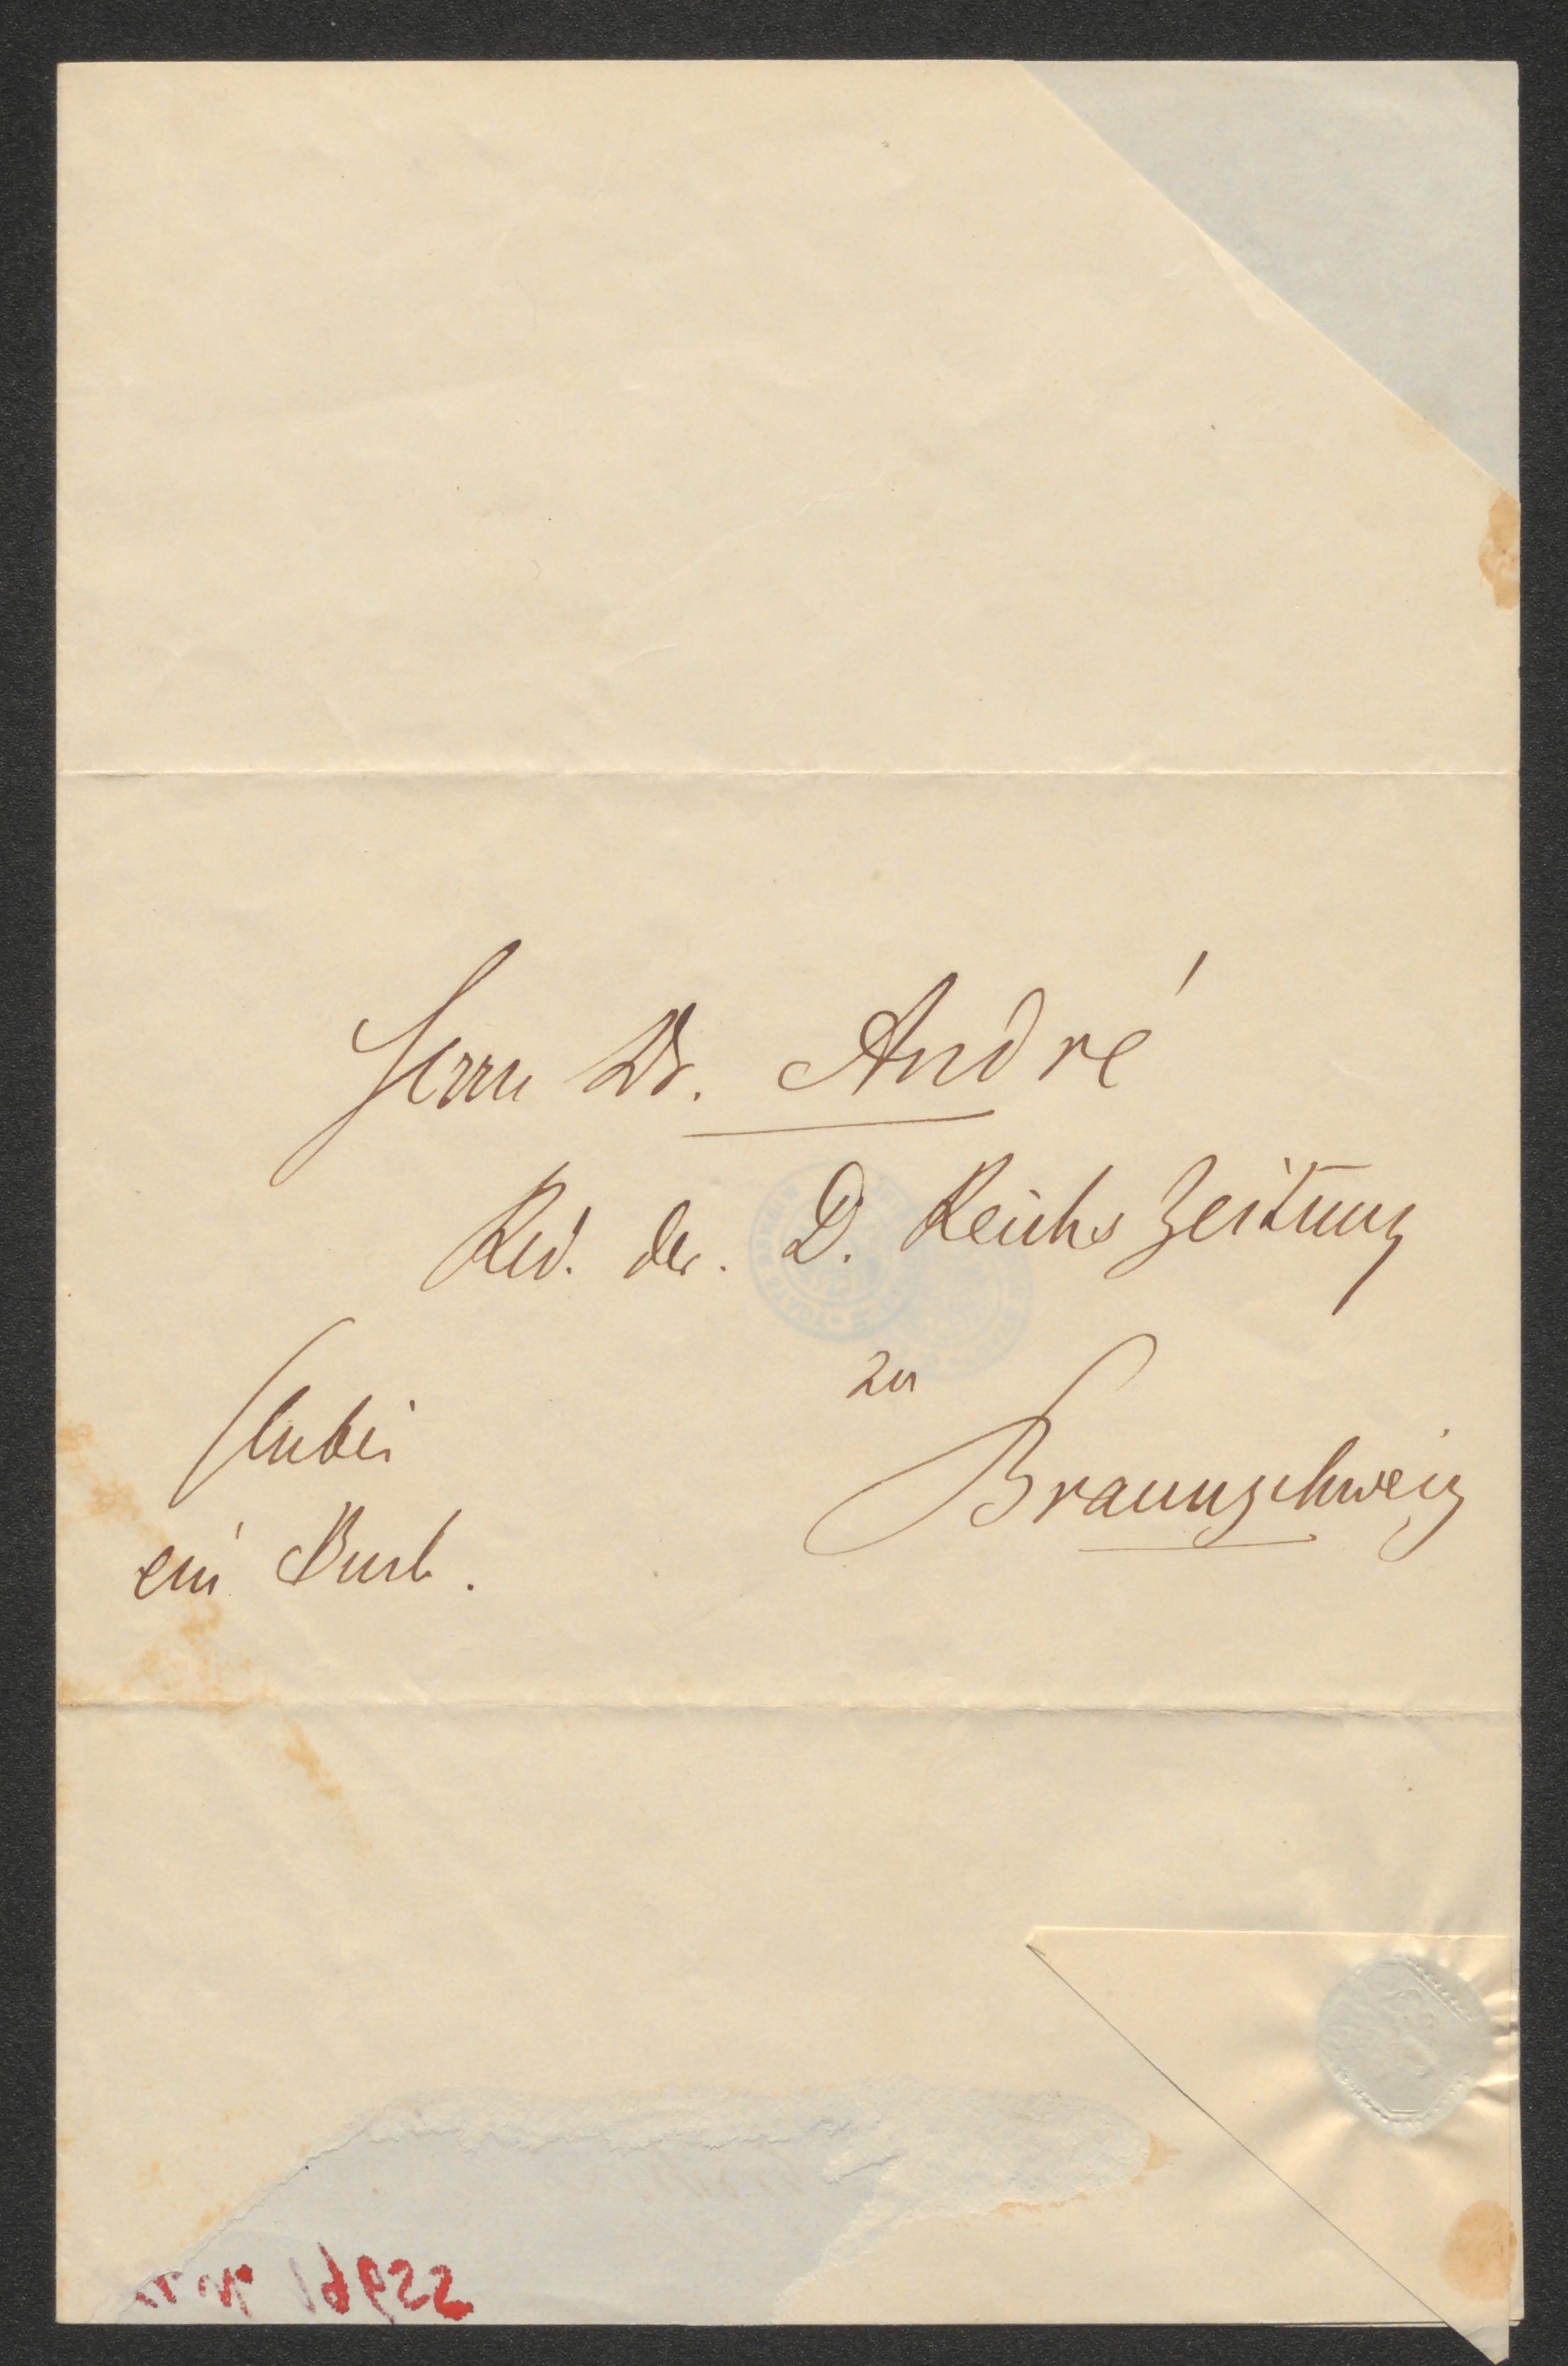 Herrn Dr. André
Red. der. D. Reichs Zeitung
zu
Braunschweig
Anbei
ein Buch.